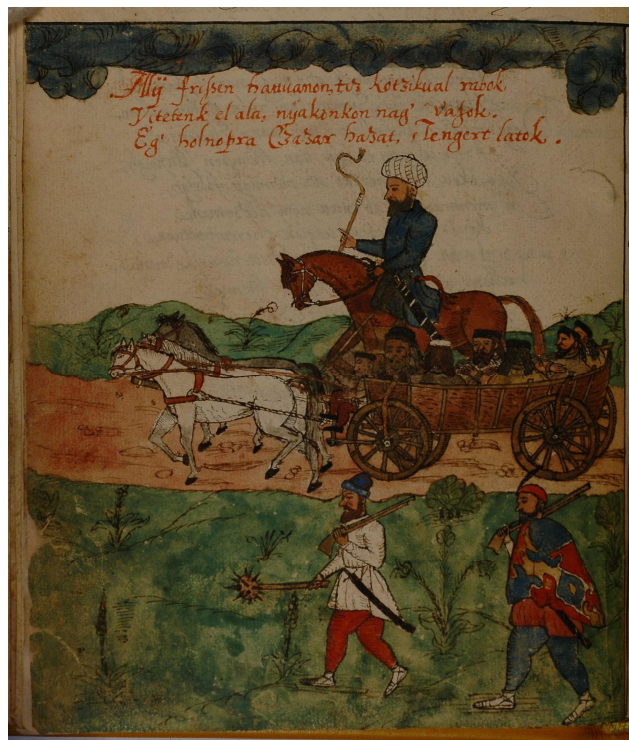 Illÿ frißen hatuanon, tiz kotzikual rabok
Vitetenk el ala, nyakenkon nag' vasok.
Eg' holnopra Czaßar haßat, s Tengert latok.